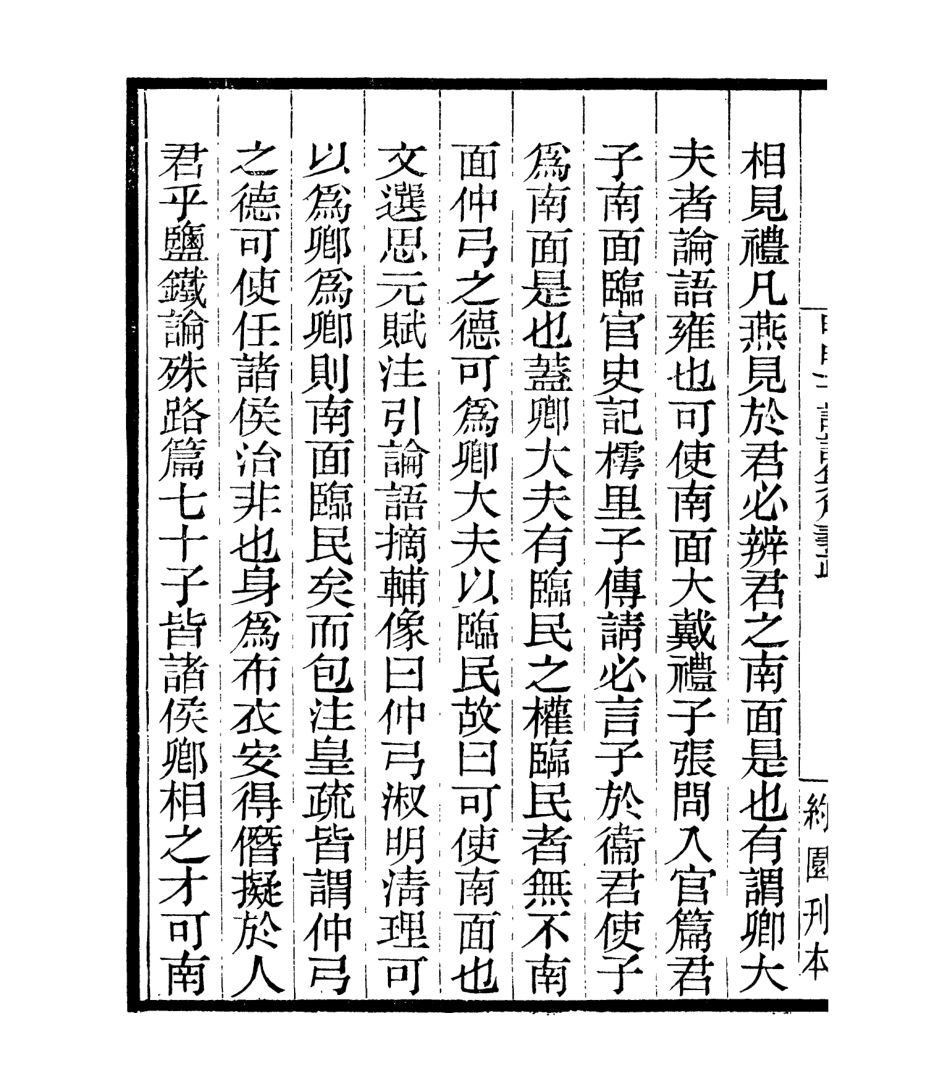 相見禮凡燕見於君必辨君之南面是也有謂卿大
夫者論語雍也可使南面大戴禮子張問入官篇君
子南面臨官史記樗里子傳請必言子於衞君使子
爲南面是也蓋卿大夫有臨民之權臨民者無不南
面仲弓之德可爲卿大夫以臨民故曰可使南面也
文選思元賦注引論語摘輔像曰仲弓淑明清理可
以爲卿爲卿則南面臨民矣而包注皇疏皆謂仲弓
之德可使任諸侯治非也身爲布衣安得僭擬於人
君乎鹽鐵論殊路篇七十子皆諸侯卿相之才可南
約園刊本